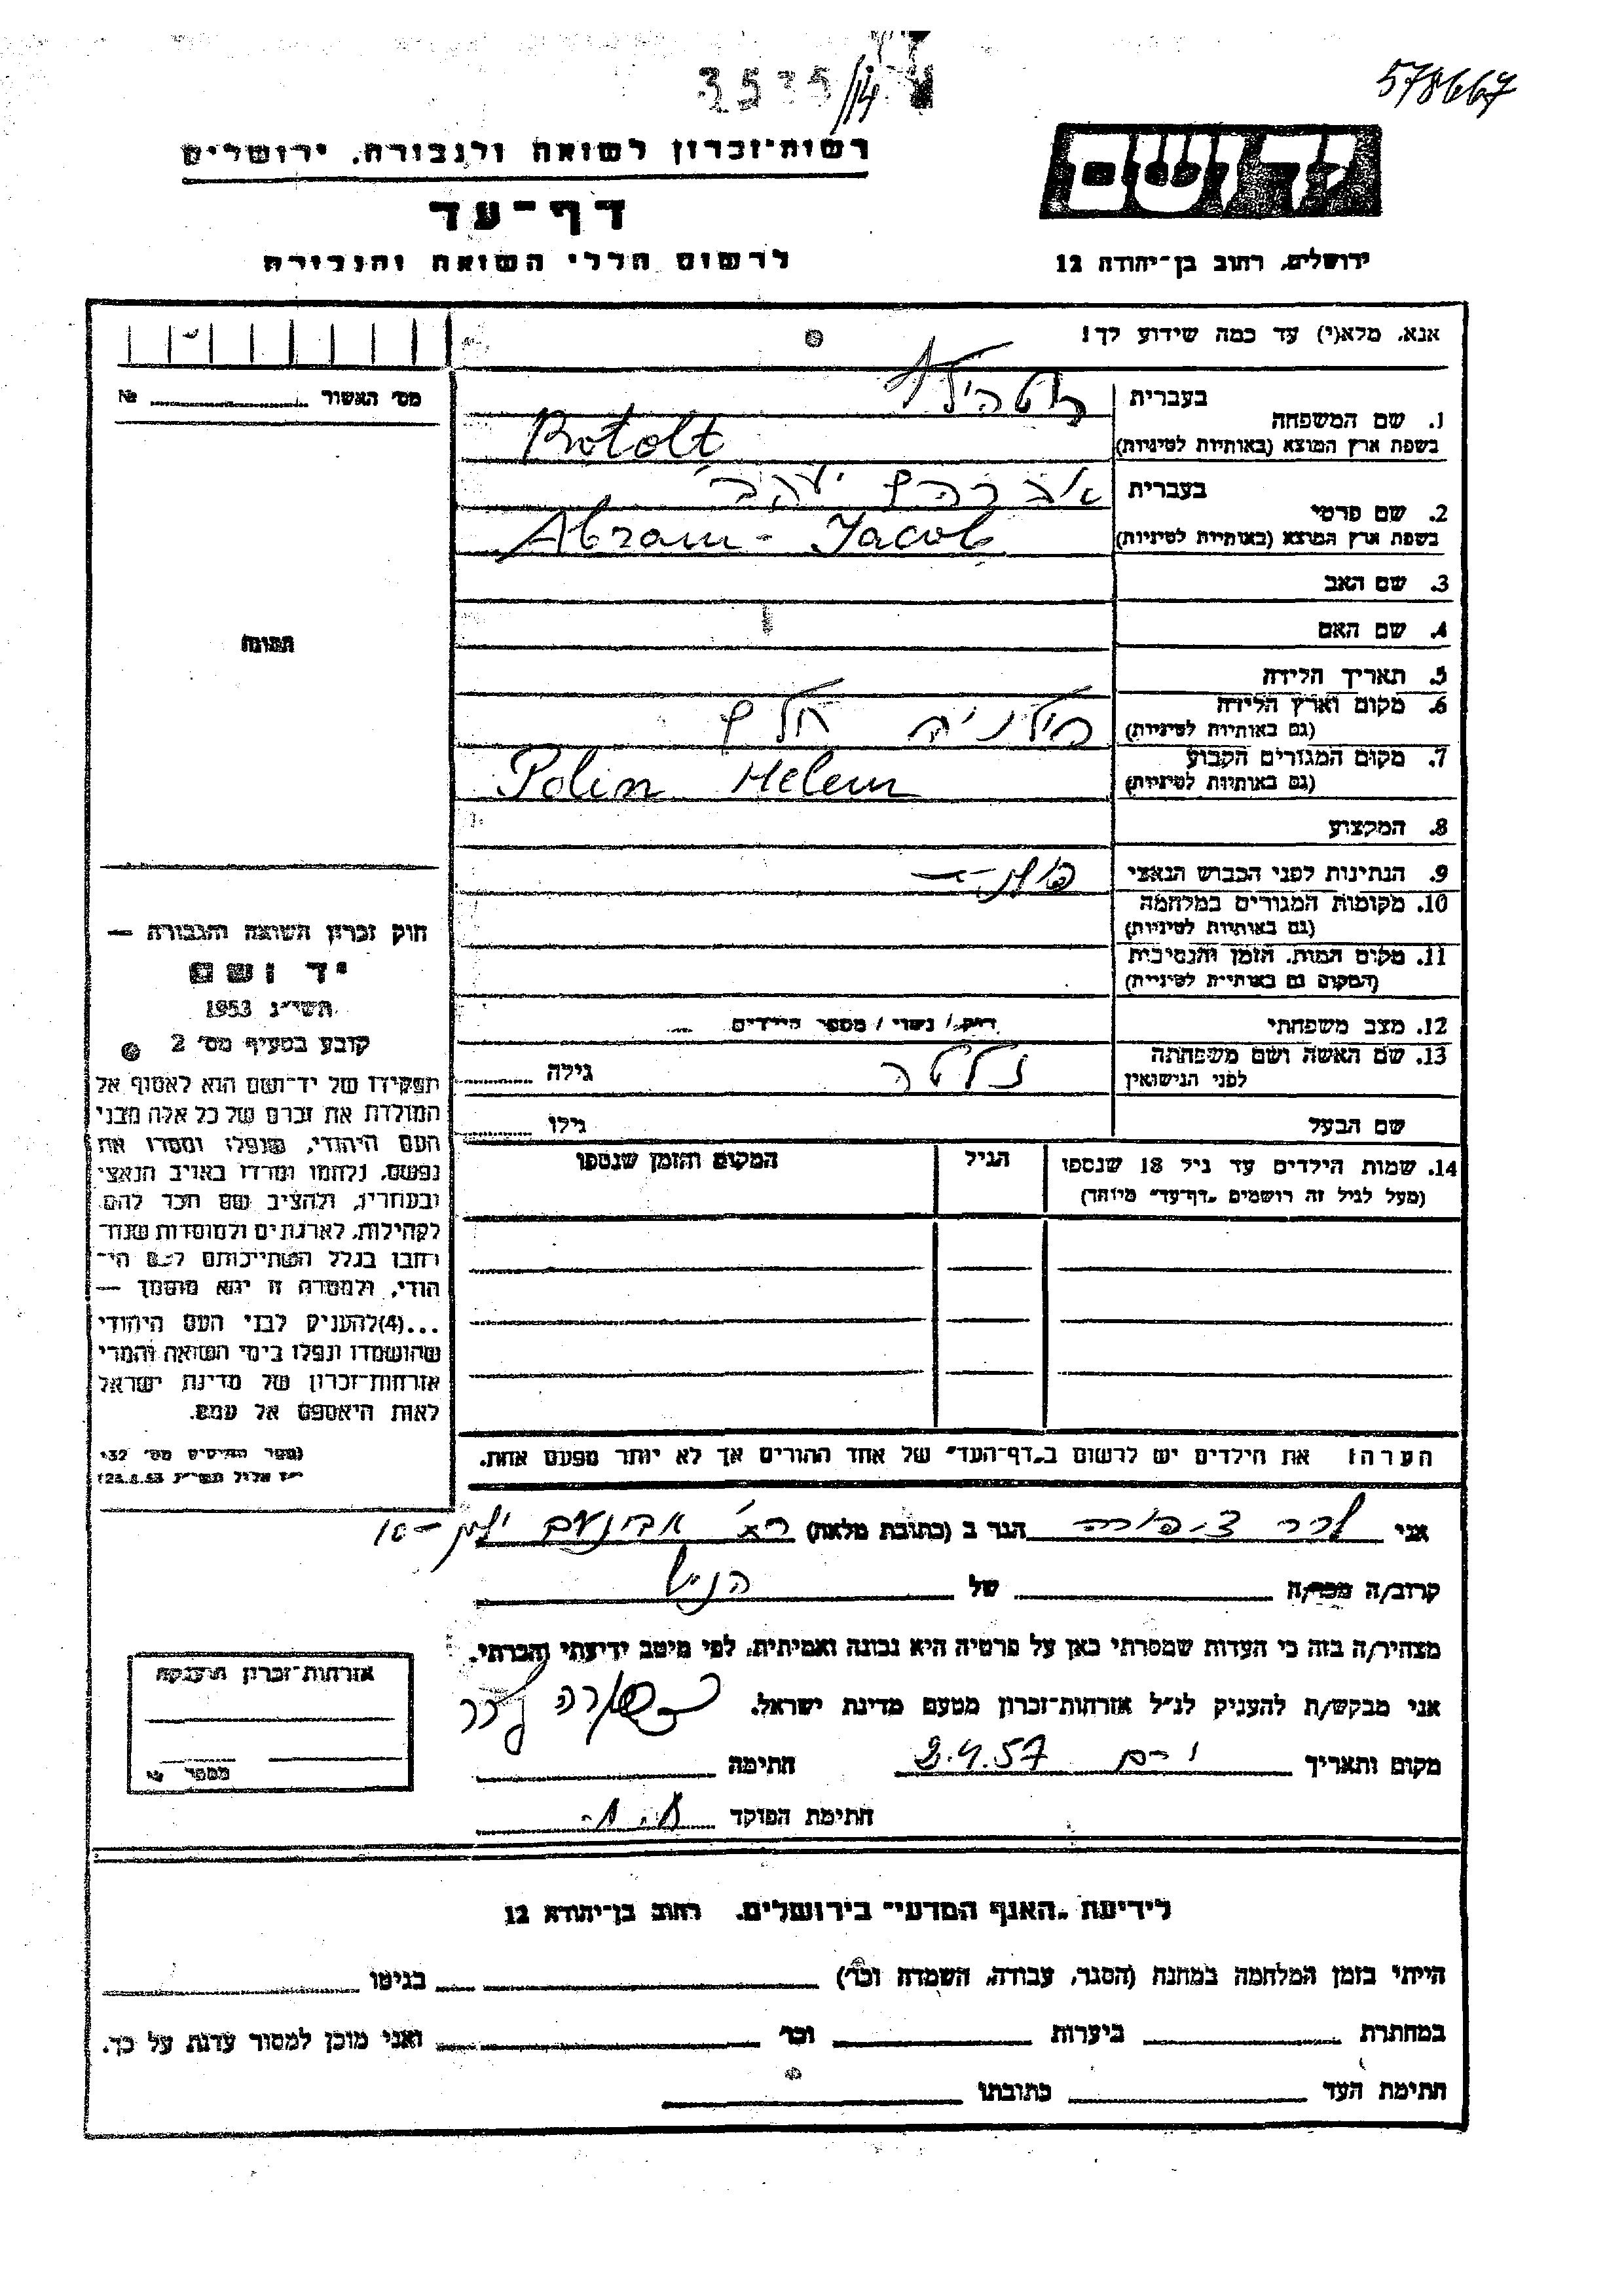 3535/14
578667
רשות־זכרון לשואה ולגבורה, ירושלים
יד ושם
דף־עד
לרשום חללי השואה והגבורה
ירושלים, רחוב בן־יהודה 12
אנא, מלא(י) עד כמה שידוע לך!
מס׳ האשור № 
1. שם המשפחה
בעברית
בשפת ארץ המוצא (באותיות לטיניות)
Rotolt
2. שם פרטי
בעברית אברהם יעקב
בשפת ארץ המוצא (באותיות לטיניות)
Abram - Jacob
3. שם האב
4. שם האם
5. תאריך הלידה
6. מקום וארץ הלידה
(גם באותיות לטיניות)
חלם
7. מקום המגורים הקבוע
(גם באותיות לטיניות)
Polin Helem
8. המקצוע
9. הנתינות לפני הכבוש הנאצי
10. מקומות המגורים במלחמה
(גם באותיות לטיניות)
11. מקום המות, הזמן והנסיבות
(המקום גם באותיות לטיניות)
12. מצב משפחתי רוק / נשוי / מספר הילדים
13. שם האשה ושם משפחתה
לפני הנישואין
גילה
שם הבעל גילו
14. שמות הילדים עד גיל 18 שנספו
(מעל לגיל זה רושמים "דף־עד" מיוחד)
הגיל
המקום והזמן שנספו
הערה: את הילדים יש לרשום ב"דף־העד" של אחד ההורים אך לא יותר מפעם אחת.
תמונה
חוק זכרון השואה והגבורה —
יד ושם
תשי״ג 1953
קובע בסעיף מס׳ 2
תפקידו של יד־ושם הוא לאסוף אל
המולדת את זכרם של כל אלה מבני
העם היהודי, שנפלו ומסרו את
נפשם, נלחמו ומרדו באויב הנאצי
ובעוזריו, ולהציב שם וזכר להם,
לקהילות, לארגונים ולמוסדות שנח־
רבו בגלל השתייכותם לעם הי־
הודי, ולמטרה זו יהא מוסמך —
...(4) להעניק לבני העם היהודי
שהושמדו ונפלו בימי השואה והמרי
אזרחות־זכרון של מדינת ישראל
לאות היאספם אל עמם.
(ספר החוקים מס׳ 132
י״ז אלול תשי״ג 28.8.53)
אני ציפורה הגר ב (כתובת מלאה) רח׳ אבינעם ילין 10
קרוב/ה מכר/ה של
מצהיר/ה בזה כי העדות שמסרתי כאן על פרטיה היא נכונה ואמיתית, לפי מיטב ידיעתי והכרתי.
אני מבקש/ת להעניק לנ״ל אזרחות־זכרון מטעם מדינת ישראל.
מקום ותאריך 2.4.57 חתימה
חתימת הפוקד
אזרחות־זכרון הוענקה
מספר
לידיעת "האגף המדעי" בירושלים, רחוב בן־יהודא 12
הייתי בזמן המלחמה במחנה (הסגר, עבודה, השמדה וכו׳) בגיטו
במחתרת ביערות וכו׳ ואני מוכן למסור עדות על כך.
חתימת העד כתובתו